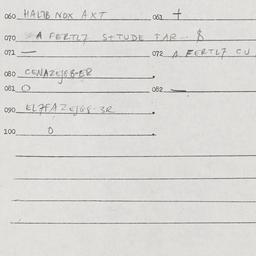 060 HALTB NOX AXT 061 †
070 A FERTL7 S+TUDE FAR - $
071 — 072 A FERTL7 CU
080 CENAZEJGB-ER
081 O 082 —
090 EL7FAZEJGG-3R
100 O